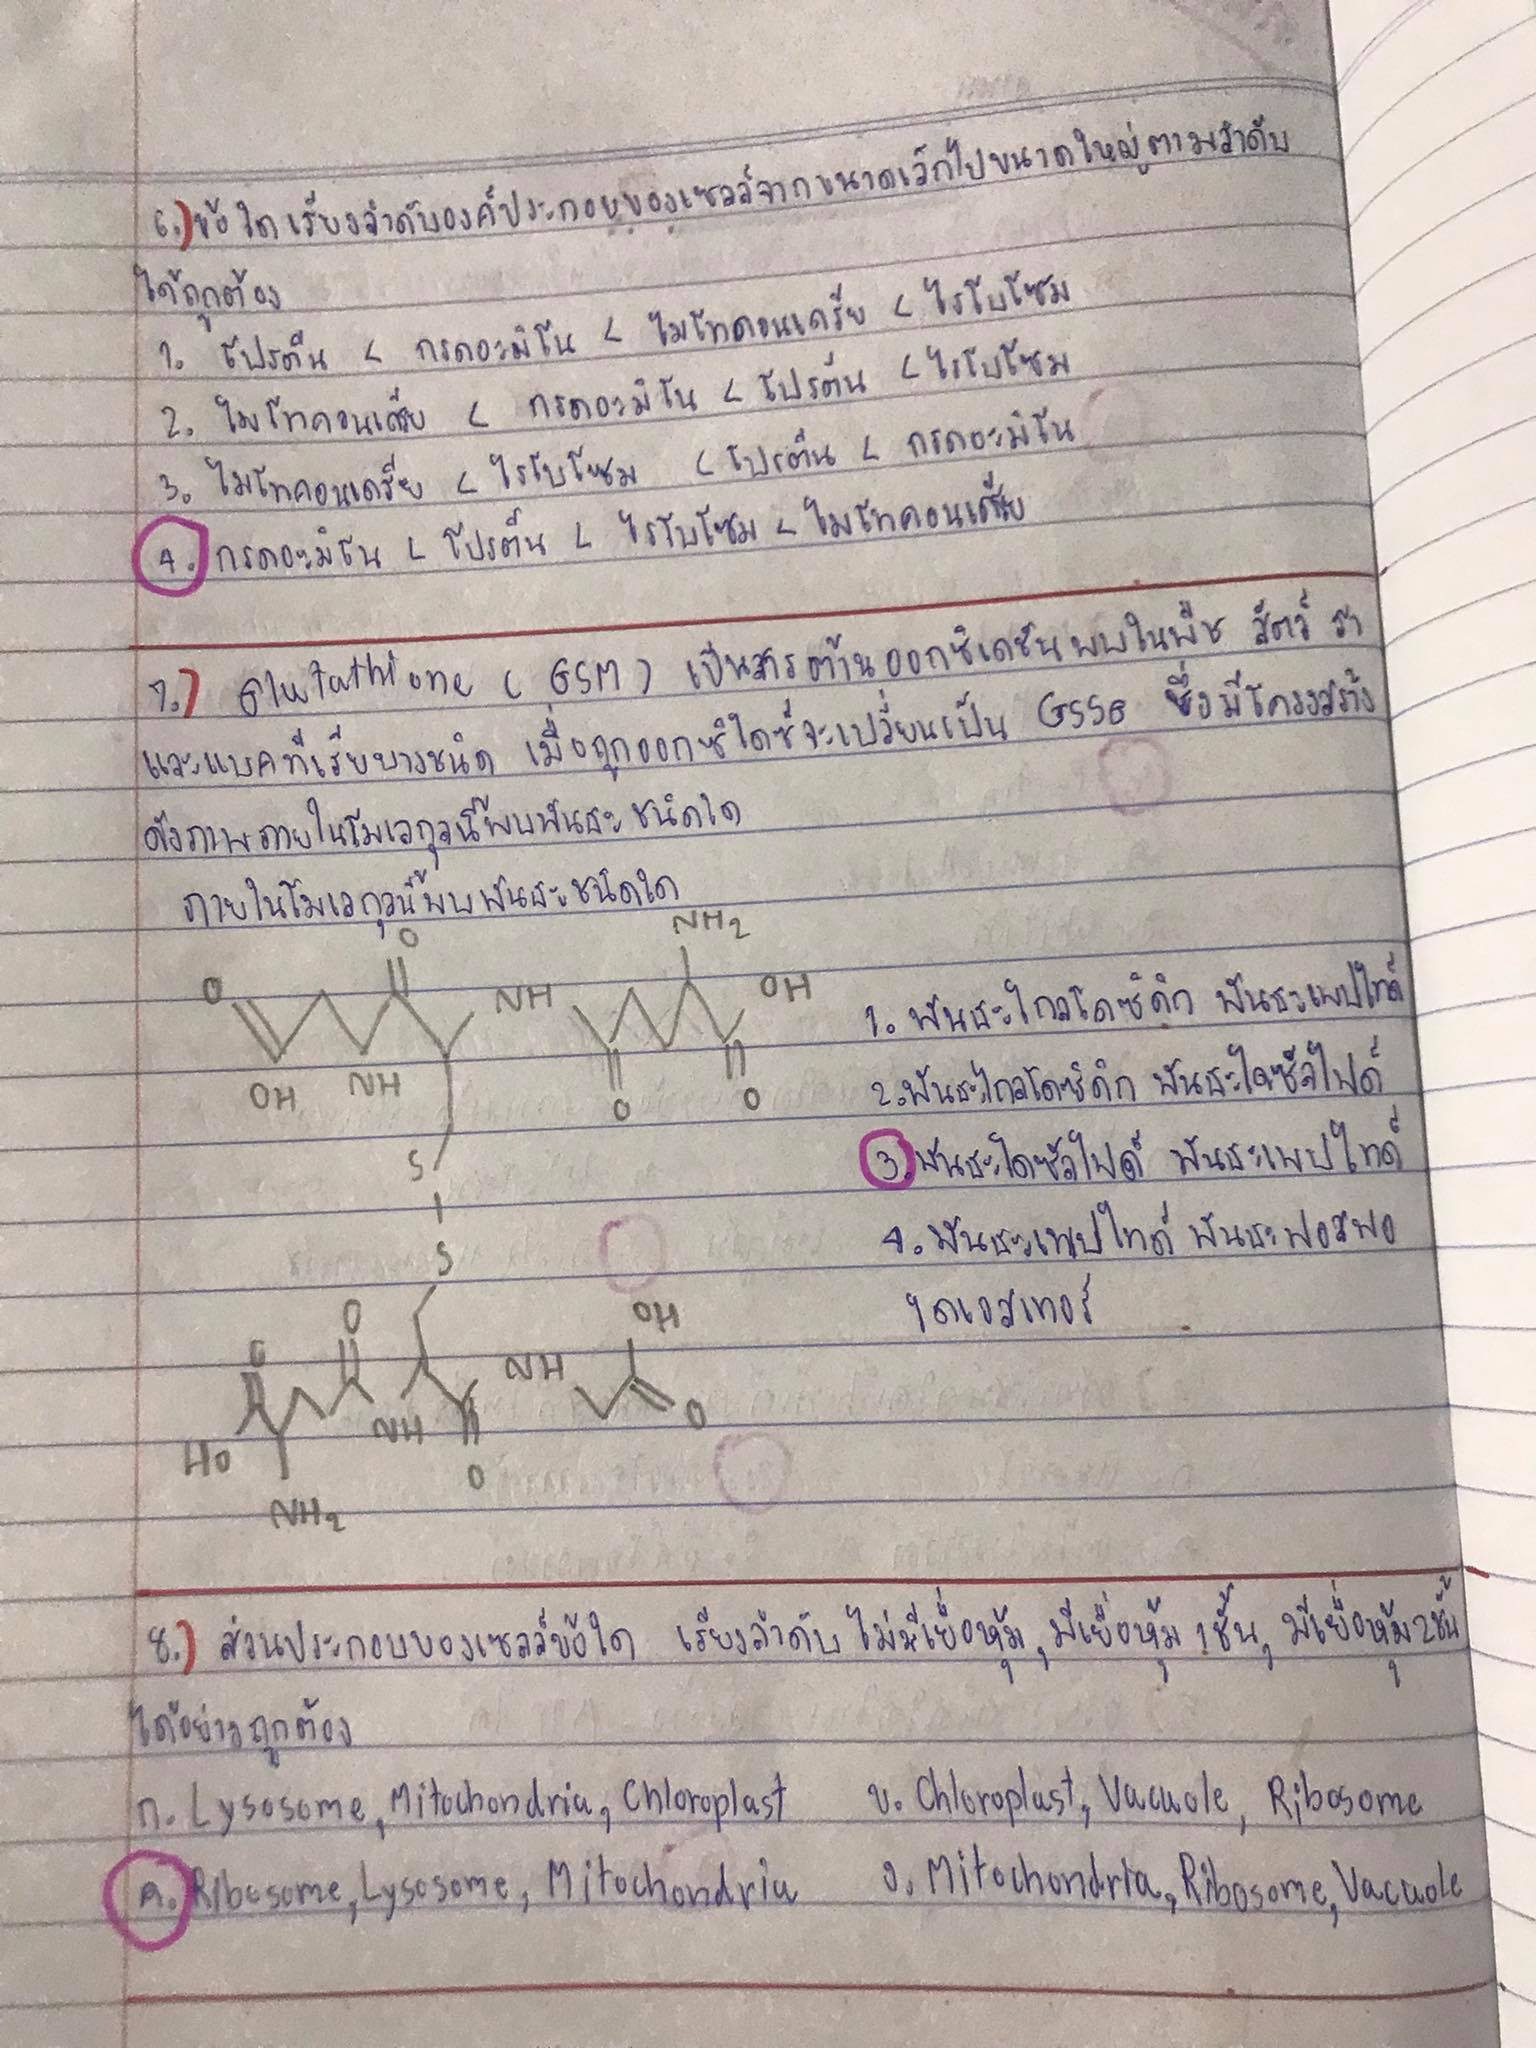 6.) ข้อใดเรียงลำดับองค์ประกอบของเซลล์จากขนาดเล็กไปขนาดใหญ่ตามลำดับ
ได้ถูกต้อง
1. โปรตีน < กรดอะมิโน < ไมโทคอนเดรีย < ไรโบโซม
2. ไมโทคอนเดรีย < กรดอะมิโน < โปรตีน < ไรโบโซม
3. ไมโทคอนเดรีย < ไรโบโซม < โปรตีน < กรดอะมิโน
4. กรดอะมิโน < โปรตีน < ไรโบโซม < ไมโทคอนเดรีย
7.) Glutathione (GSM) เป็นสารต้านออกซิเดชันพบในพืช สัตว์ รา
และแบคทีเรียบางชนิด เมื่อถูกออกซิไดซ์จะเปลี่ยนเป็น GSSG ซึ่งมีโครงสร้าง
ดังภาพภายในโมเลกุลนี้พบพันธะชนิดใด
ภายในโมเลกุลนี้พบพันธะชนิดใด
O O NH NH2 OH
OH NH O O
S
S
O O NH OH
HO NH O O
NH2
1. พันธะไกลโคซิดิก พันธะเพปไทด์
2. พันธะไกลโคซิดิก พันธะไดซัลไฟด์
3. พันธะไดซัลไฟด์ พันธะเพปไทด์
4. พันธะเพปไทด์ พันธะฟอสฟอ
ไดเอสเทอร์
8.) ส่วนประกอบของเซลล์ข้อใด เรียงลำดับ ไม่มีเยื่อหุ้ม, มีเยื่อหุ้ม 1 ชั้น, มีเยื่อหุ้ม 2 ชั้น
ได้อย่างถูกต้อง
ก. Lysosome, Mitochondria, Chloroplast ข. Chloroplast, Vacuole, Ribosome
ค. Ribosome, Lysosome, Mitochondria ง. Mitochondria, Ribosome, Vacuole